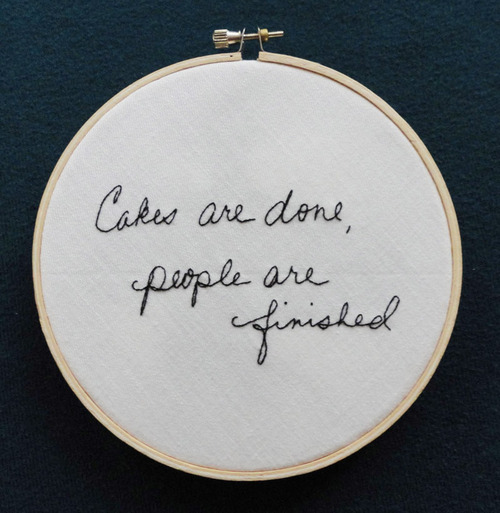 Cakes are done,
people are
finished